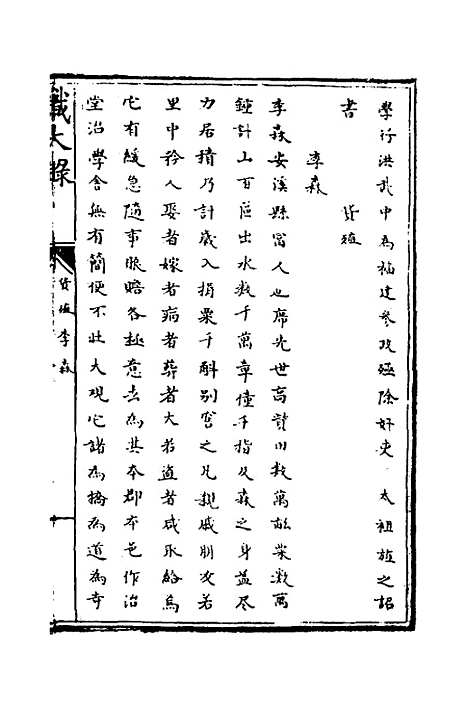 學行洪武中為福建參政極除奸吏太祖旌之詔
書
貨殖
李森
李森安溪縣富人也席先世高貲田數萬畝粟數萬
鍾計山百區出水數千萬章僮千指及森之身益尽
力居積乃計歲入捐粟千斛別窖之凡親戚朋友若
里中矜人娶者嫁者病者葬者大者道者咸取給焉
它有緩急隨事賑賂各極意去為其本郡本邑作治
堂治學舍無有簡便不此大观它諸為橋為道為寺
識大錄
貨殖李森